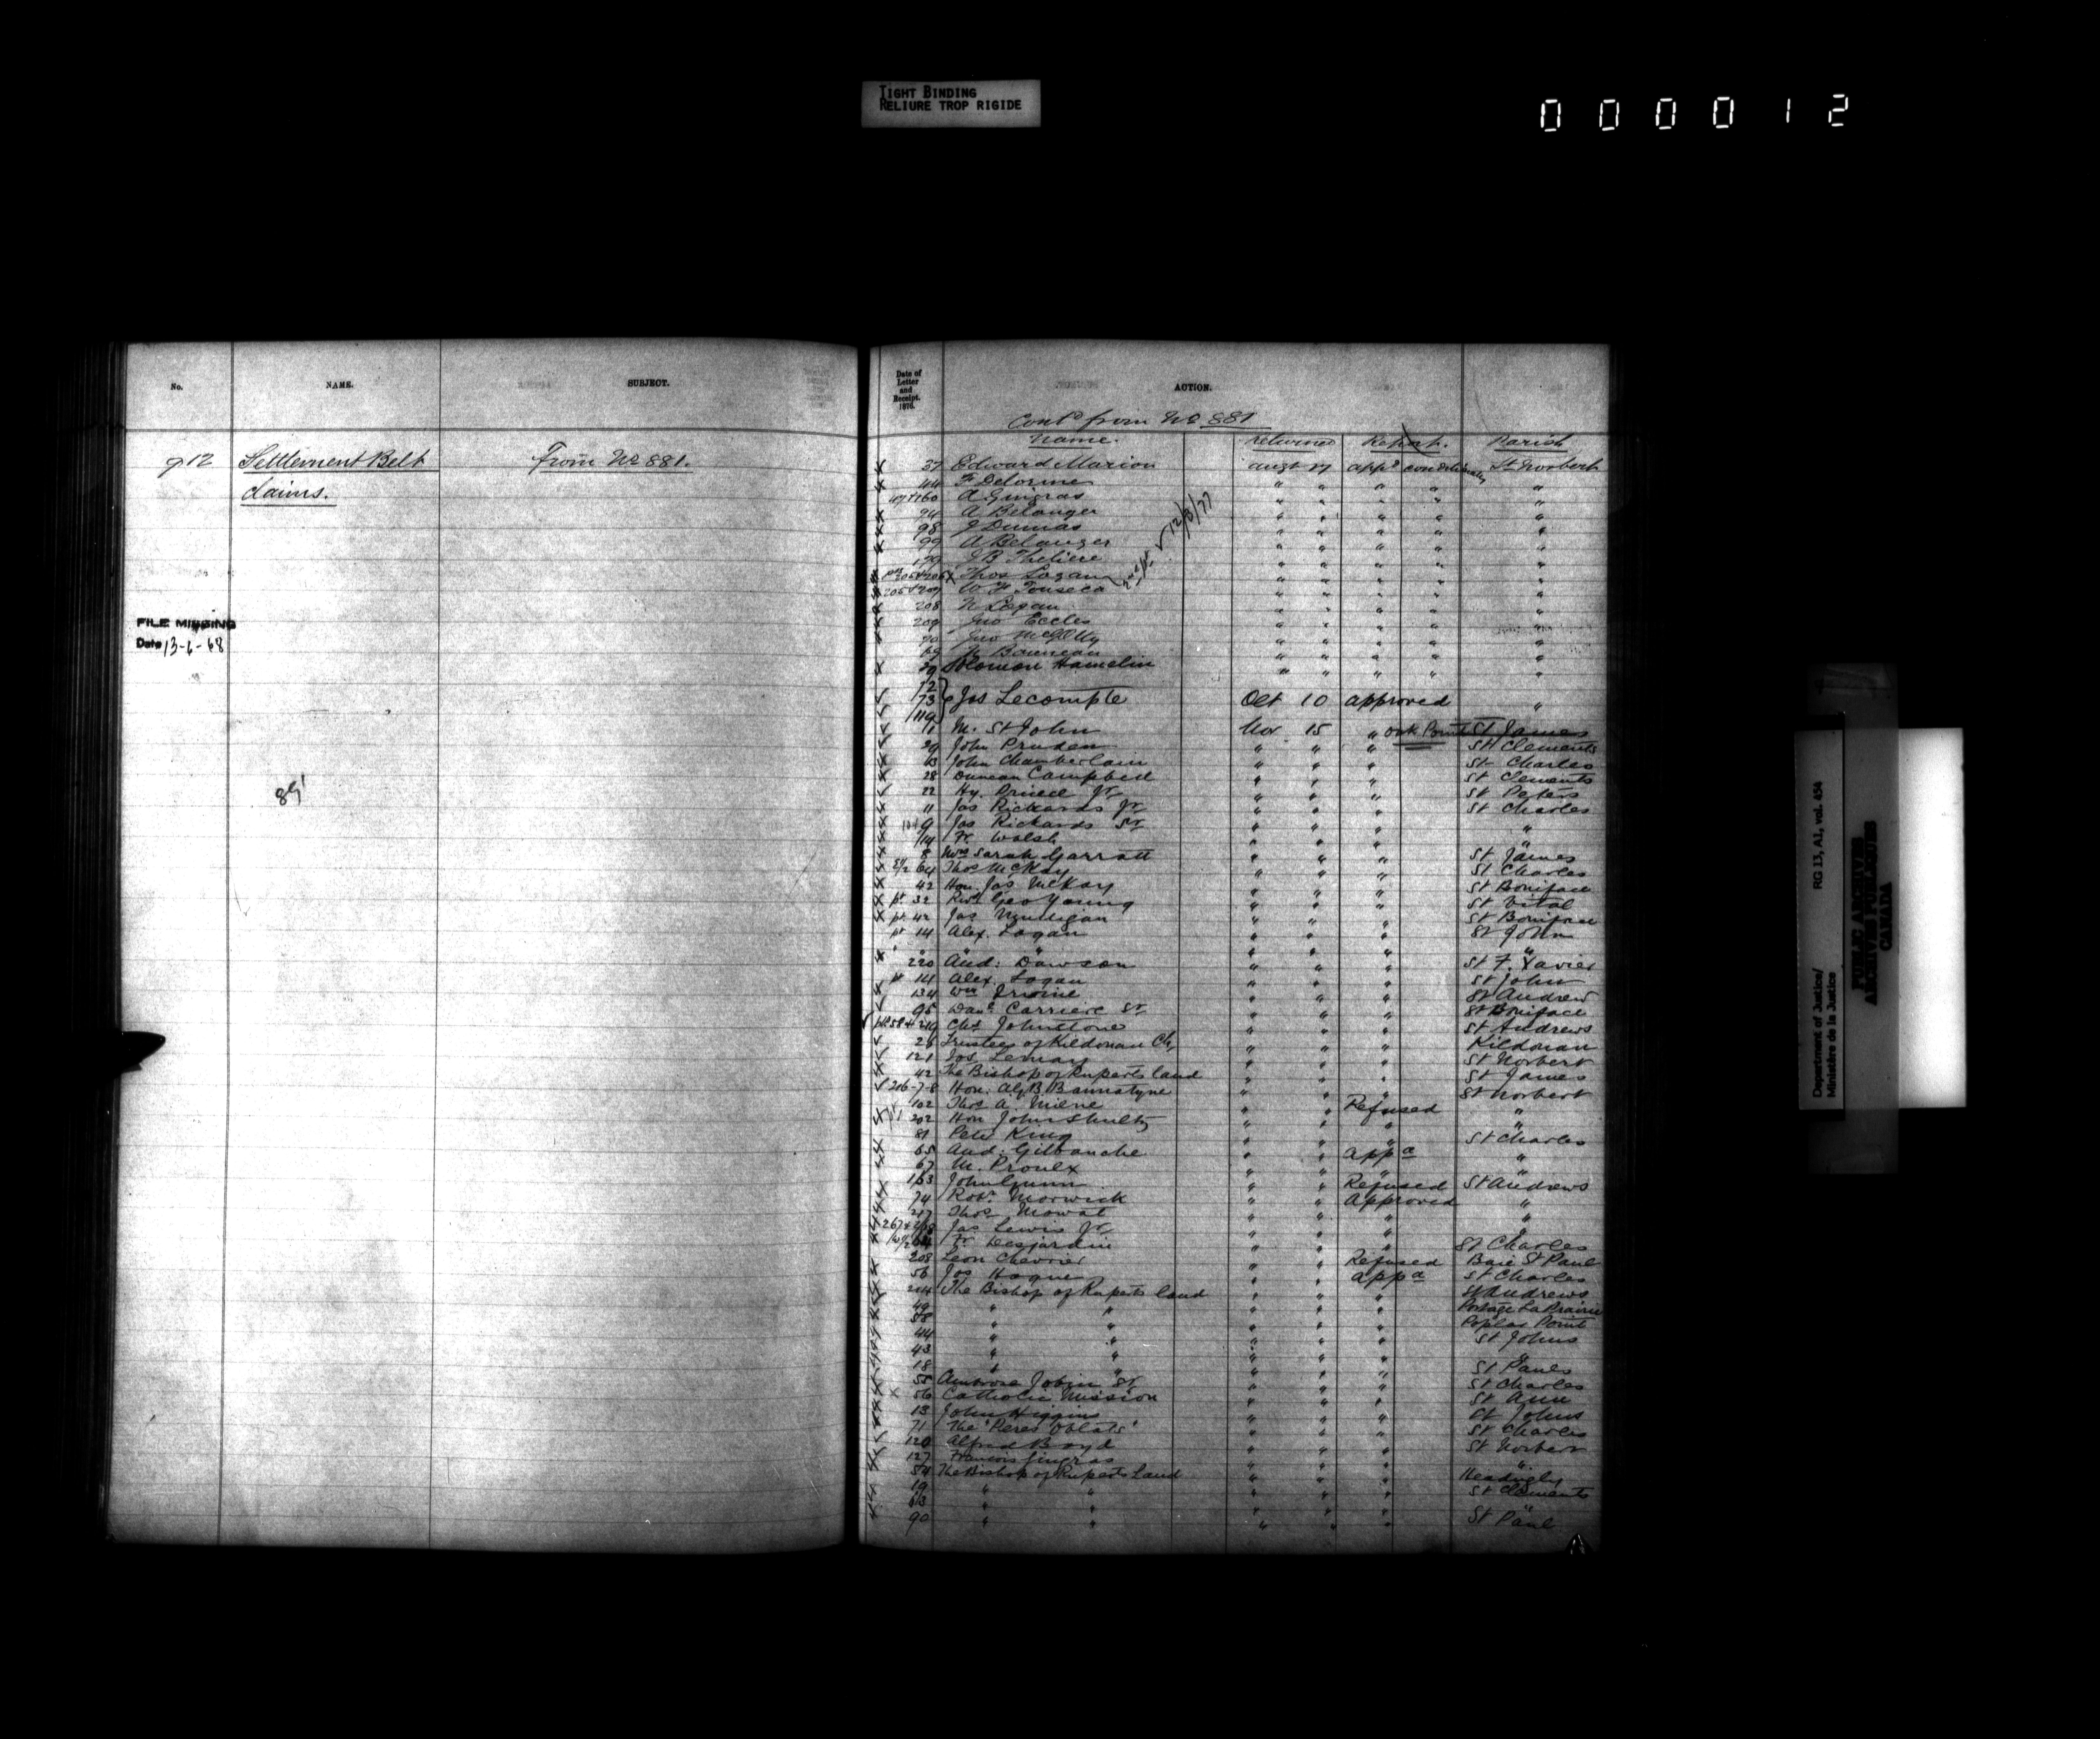 TIGHT BINDING
RELIURE TROP RIGIDE
0 0 0 0 1 2
No. NAME. SUBJECT.
912 Settlement Belt From No 881.
claims.
FILE MISSING
Date 13-6-68
Date of Letter and Receipt. 1876. ACTION.
Cont'd from No 881
Name. Returned Report. Parish
37 Edward Marion augt 17 app'd conditionally St Norbert
44 F Delorme " " " " "
A Gingras " " " " "
94 A Belanger " " " " "
98 J Dumas " " " " "
99 A Belanger " " " " "
J B " " " " "
Thos Logan " " " " "
12/3/77
W F Fonseca " " " " "
208 N Logan " " " " "
209 Jno Eccles " " " " "
Jno " " " " "
" " " " "
Solomon Hamelin " " " " "
72
73 Jos Lecompte Oct 10 approved "
119
11 M. St John Nov 15 " Oak Point St James
29 John Pruden " " " St Clements
13 John Chamberlain " " " St Charles
28 Duncan Campbell " " " St Clements
22 Hy. Prince Jr " " " St Peters
11 Jas Rickards Jr " " " St Charles
9 Jas Rickards Sr " " " "
14 Walsh " " " "
8 Mrs Sarah Garratt " " " St James
64 Thos McKay " " " St Charles
42 Hon. Jas McKay " " " St Boniface
pt 32 Revd Geo Young " " " St Vital
pt 42 Jas Mulligan " " " St Boniface
pt 14 Alex. Logan " " " St John
" " " " " " "
220 And: Dawson " " " St F. Xavier
pt 14 Alex. Logan " " " St John
134 Wm Irvine " " " St Andrew
95 Dan. Carriere Sr " " " St Boniface
Chs Johnstone " " " St Andrews
26 Trustees of Kildonan Ch, " " " Kildonan
121 Jos Lemay " " " St Norbert
42 The Bishop of Ruperts land " " " St James
206-7-8 Hon. A.G.B. Bannatyne " " " St Norbert
102 Thos A. Milne " " Refused "
202 Hon John Shultz " " " "
81 Peter King " " " St Charles
65 And: Gilbanche " " app'd "
67 M. Proulx " " " "
163 John Gunn " " Refused St Andrews
74 Robt. Morwick " " Approved "
217 Thos Mowat " " " "
Jas Lewis Jr " " " "
Fr Desjardin " " " St Charles
208 Leon Chevrier " " Refused Baie St Paul
56 Jos Hogue " " app'd St Charles
244 The Bishop of Ruperts land " " " St Andrews
49 " " " " " Portage La Prairie
58 " " " " " Poplar Point
44 " " " " " St Johns
43 " " " " " "
18 " " " " " St Pauls
55 Ambrose Jobin Sr " " " St Charles
56 Catholic Mission " " " St Ann
13 John Higgins " " " St Johns
71 The "Peres Oblats" " " " St Charles
120 Alfred Boyd " " " St Norbert
127 Francois Gingras " " " "
54 The Bishop of Ruperts Land " " " Headingly
19 " " " " " St Clements
" " " " " "
90 " " " " " St Paul
Department of Justice/ RG 13, A1, vol. 454
Ministère de la Justice
PUBLIC ARCHIVES
ARCHIVES PUBLIQUES
CANADA